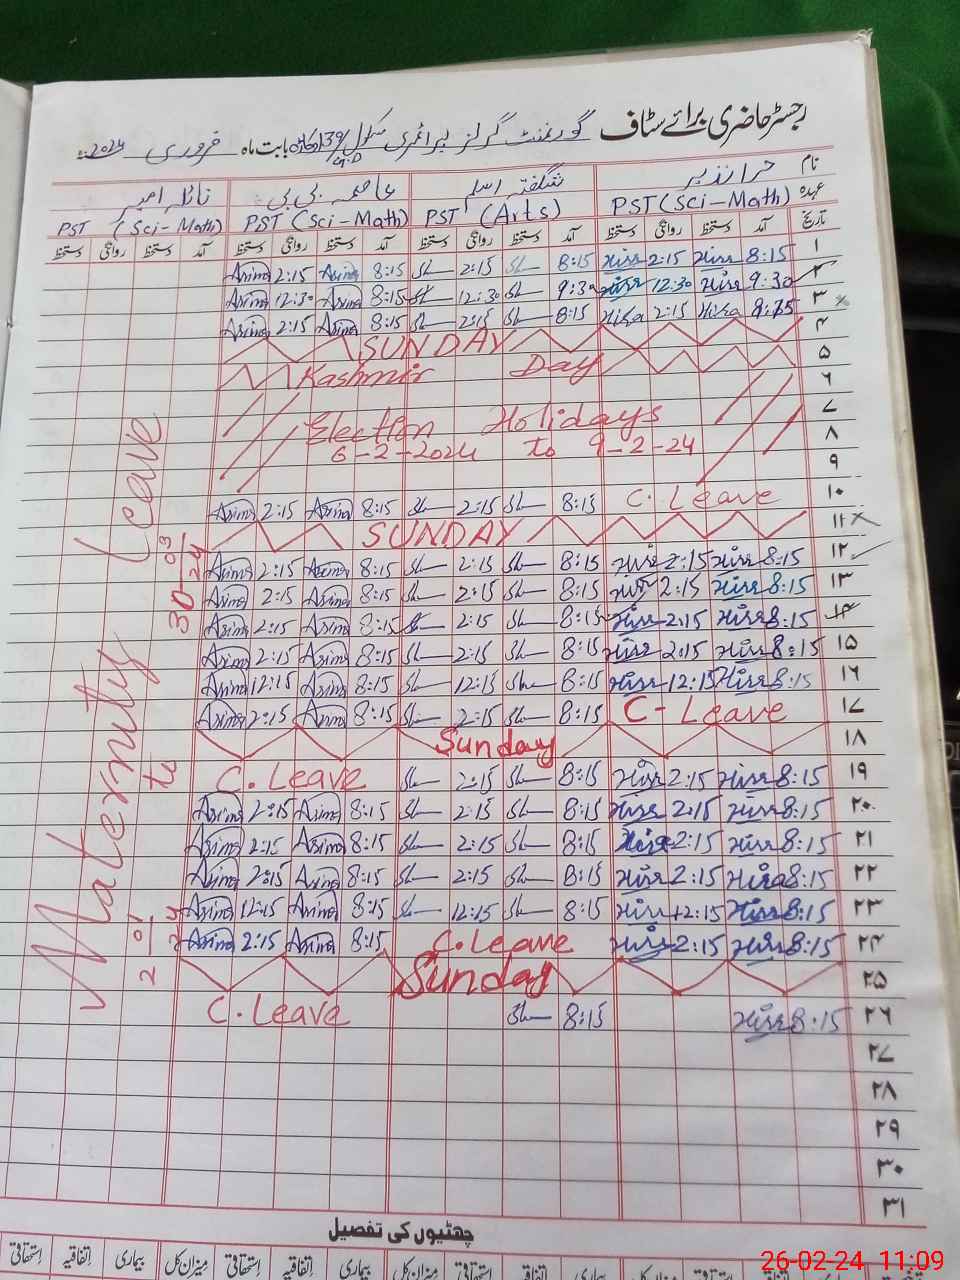 رجسٹر حاضری برائے سٹاف گورنمنٹ گرلز پرائمری سکول بابت ماہ فروری 2024ء
نام حرا نذیر شگفتہ اسلم عاصمہ بی بی نائلہ
عہدہ PST (Sci-Math) PST (Arts) PST (Sci-Math) PST (Sci-Math)
تاریخ آمد دستخط روانگی دستخط آمد دستخط روانگی دستخط آمد دستخط روانگی دستخط آمد دستخط روانگی دستخط
Asima 2:15 Asima 8:15 Sh 2:15 Sh 8:15 Hira 2:15 Hira 8:15 ۱
Asima 12:30 Asima 8:15 Sh 12:30 Sh 9:30 Hira 12:30 Hira 9:30 ۲
Asima 2:15 Asima 8:15 Sh 2:15 Sh 8:15 Hira 2:15 Hira 8:15 ۳
SUNDAY ۴
Kashmir Day ۵
۶
Election Holidays ۷
6-2-2024 to 9-2-24 ۸
۹
Asima 2:15 Asima 8:15 Sh 2:15 Sh 8:15 C. Leave ۱۰
SUNDAY ۱۱
Asima 2:15 Asima 8:15 Sh 2:15 Sh 8:15 Hira 2:15 Hira 8:15 ۱۲
Asima 2:15 Asima 8:15 Sh 2:15 Sh 8:15 Hira 2:15 Hira 8:15 ۱۳
Asima 2:15 Asima 8:15 Sh 2:15 Sh 8:15 Hira 2:15 Hira 8:15 ۱۴
Asima 2:15 Asima 8:15 Sh 2:15 Sh 8:15 Hira 2:15 Hira 8:15 ۱۵
Asima 12:15 Asima 8:15 Sh 12:15 Sh 8:15 Hira 12:15 Hira 8:15 ۱۶
Asima 2:15 Asima 8:15 Sh 2:15 Sh 8:15 C- Leave ۱۷
Sunday ۱۸
C. Leave Sh 2:15 Sh 8:15 Hira 2:15 Hira 8:15 ۱۹
Asima 2:15 Asima 8:15 Sh 2:15 Sh 8:15 Hira 2:15 Hira 8:15 ۲۰
Asima 2:15 Asima 8:15 Sh 2:15 Sh 8:15 Hira 2:15 Hira 8:15 ۲۱
Asima 2:15 Asima 8:15 Sh 2:15 Sh 8:15 Hira 2:15 Hira 8:15 ۲۲
Asima 12:15 Asima 8:15 Sh 12:15 Sh 8:15 Hira 12:15 Hira 8:15 ۲۳
Asima 2:15 Asima 8:15 C. Leave Hira 2:15 Hira 8:15 ۲۴
Sunday ۲۵
C. Leave Sh 8:15 Hira 8:15 ۲۶
۲۷
۲۸
۲۹
۳۰
۳۱
Maternity Leave
2-01-24 to 30-03-24
چھٹیوں کی تفصیل
بیماری اتفاقیہ استحقاقی میزان کل بیماری اتفاقیہ استحقاقی میزان کل بیماری اتفاقیہ استحقاقی میزان کل بیماری اتفاقیہ استحقاقی
26-02-24 11:09